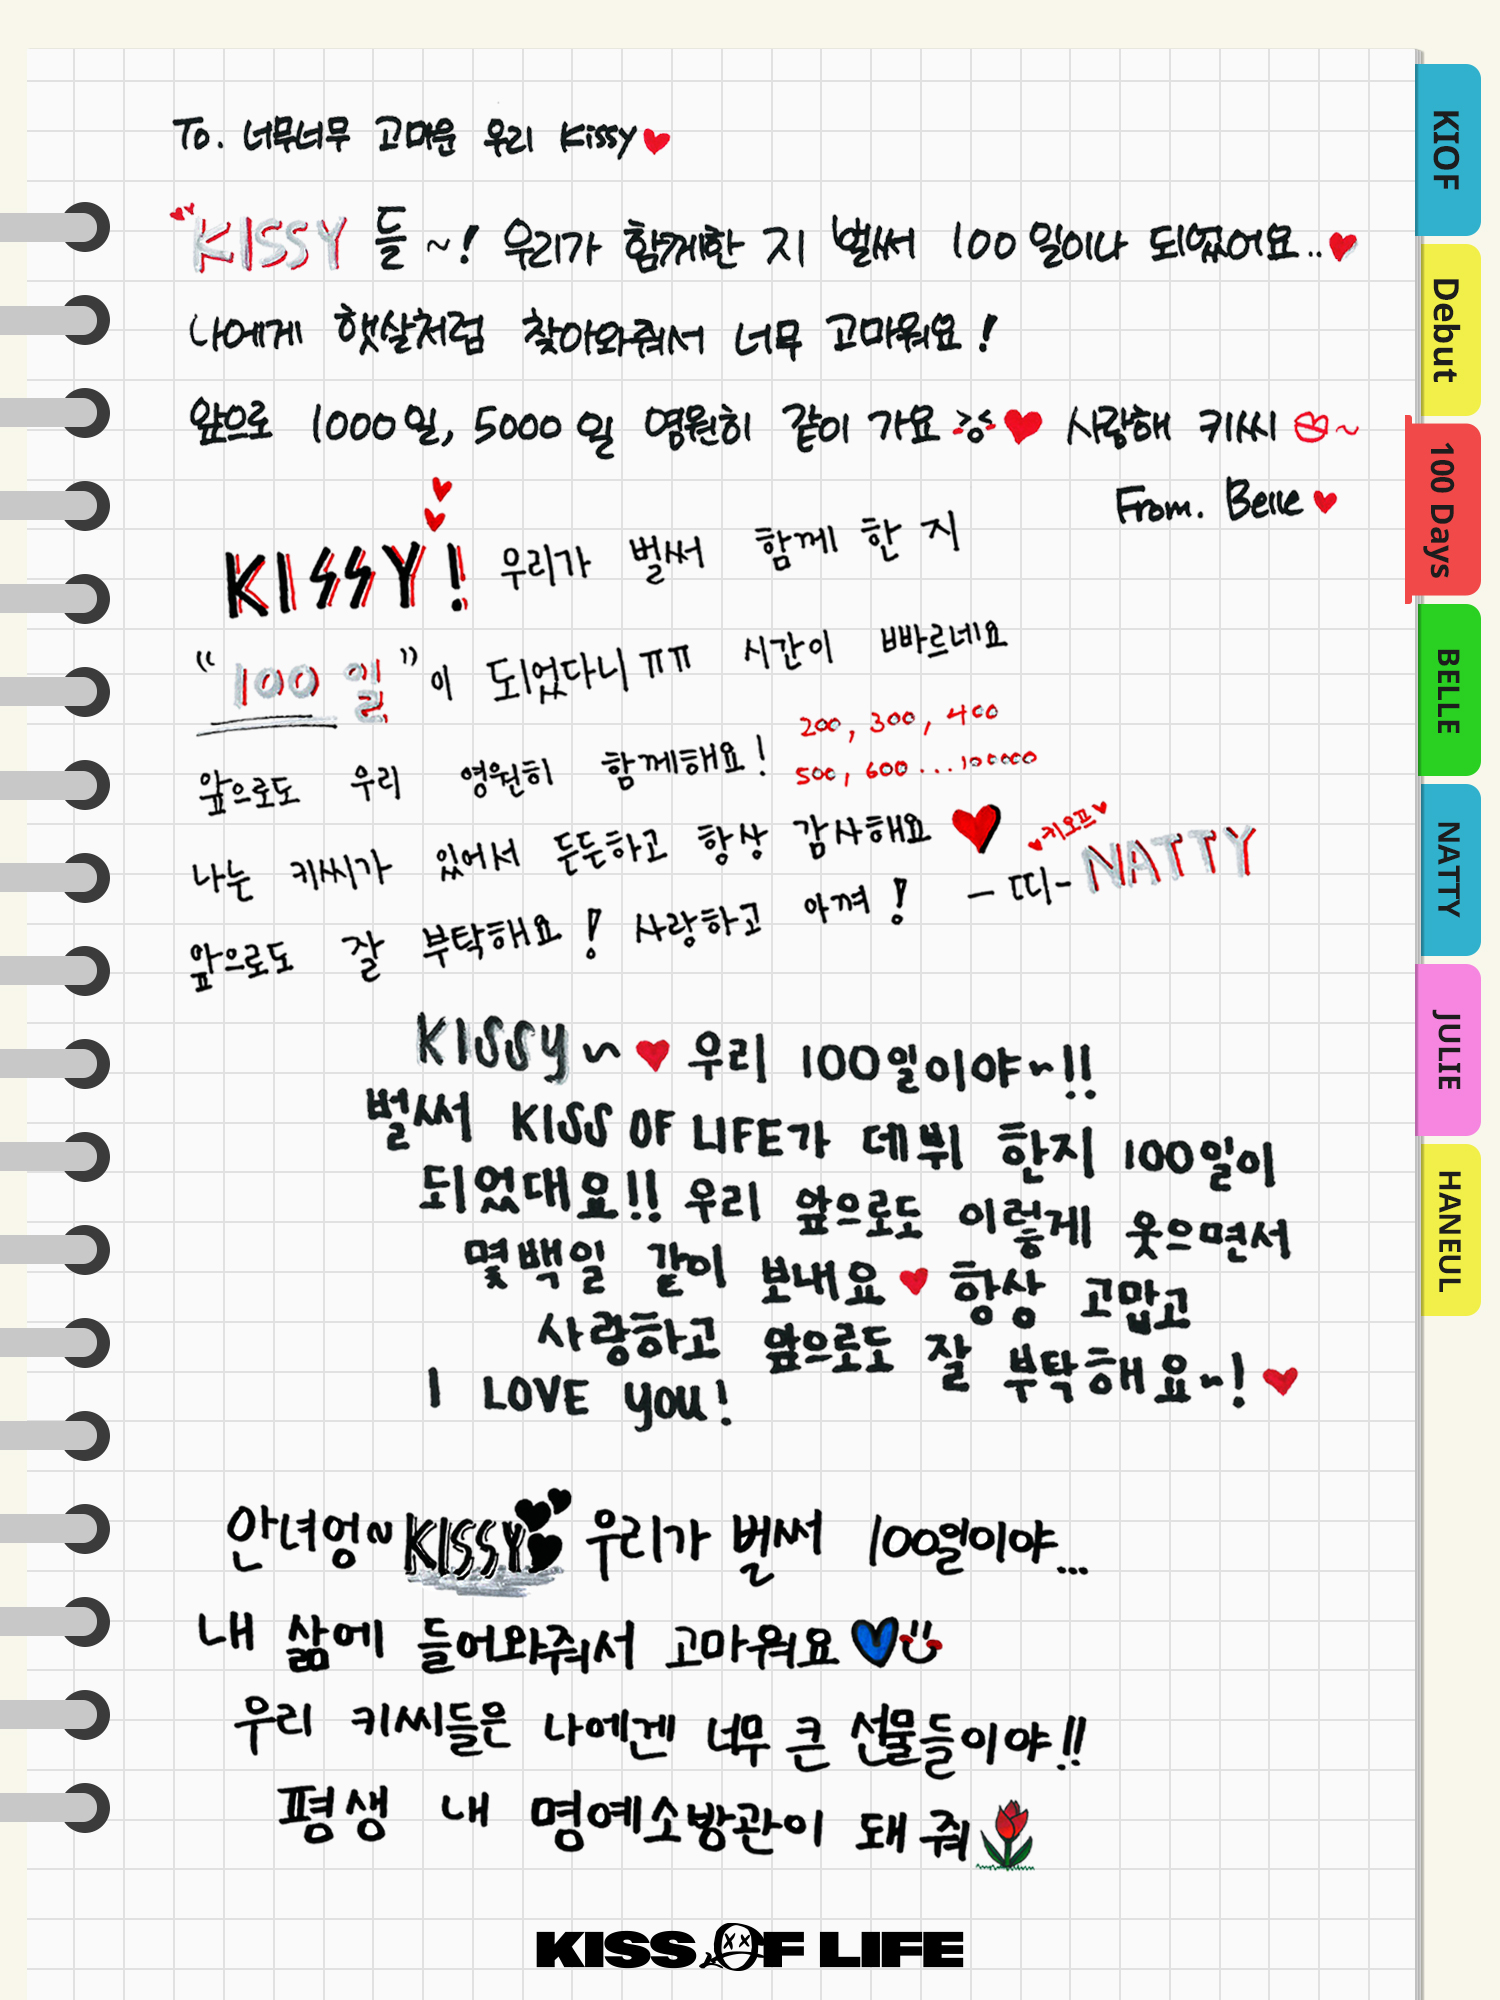 To. 너무너무 고마운 우리 Kissy♥
KISSY 들 ~! 우리가 함께한 지 벌써 100일이나 되었어요..♥
나에게 햇살처럼 찾아와줘서 너무 고마워요!
앞으로 1000일, 5000일 영원히 같이 가요 >3< ♥ 사랑해 키씨 ~
From. Belle ♥
KISSY! 우리가 벌써 함께 한 지
"100일"이 되었다니 ㅠㅠ 시간이 빠르네요
앞으로도 우리 영원히 함께해요!
200, 300, 400
500, 600 ... 100000
나는 키씨가 있어서 든든하고 항상 감사해요 ♥
앞으로도 잘 부탁해요! 사랑하고 아껴!
♥키오프♥
- 띠- NATTY
KISSy~ ♥ 우리 100일이야~!!
벌써 KISS OF LIFE가 데뷔 한지 100일이
되었대요!! 우리 앞으로도 이렇게 웃으면서
몇백일 같이 보내요 ♥ 항상 고맙고
사랑하고 앞으로도 잘 부탁해요~! ♥
I LOVE you!
안녀엉~ KISSY 우리가 벌써 100일이야...
내 삶에 들어와줘서 고마워요
우리 키씨들은 나에겐 너무 큰 선물들이야!!
평생 내 명예소방관이 돼 줘
KISS OF LIFE
KIOF
Debut
100 Days
BELLE
NATTY
JULIE
HANEUL